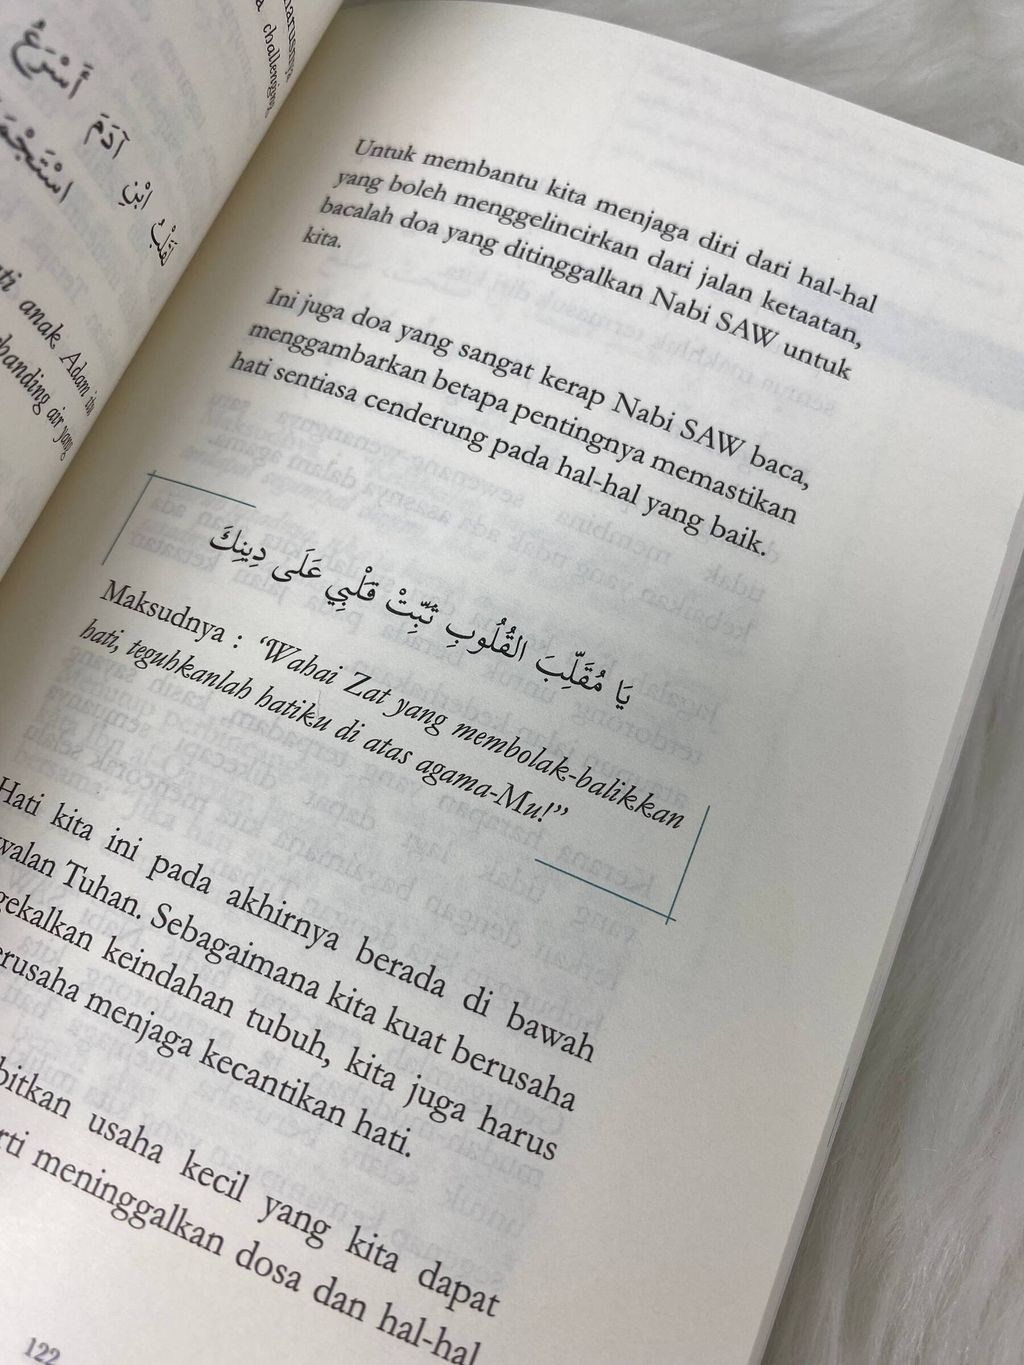 harusnya
challenging
أَسْرَعُ
آدَمَ
ابْنِ
لَقَلْبُ
anak Adam itu
banding air yang
Untuk membantu kita menjaga diri dari hal-hal
yang boleh menggelincirkan dari jalan ketaatan,
bacalah doa yang ditinggalkan Nabi SAW untuk
kita.
Ini juga doa yang sangat kerap Nabi SAW baca,
menggambarkan betapa pentingnya memastikan
hati sentiasa cenderung pada hal-hal yang baik.
يَا مُقَلِّبَ القُلُوبِ ثَبِّتْ قَلْبِي عَلَى دِينِكَ
Maksudnya : “Wahai Zat yang membolak-balikkan
hati, teguhkanlah hatiku di atas agama-Mu!”
Hati kita ini pada akhirnya berada di bawah
walan Tuhan. Sebagaimana kita kuat berusaha
gekalkan keindahan tubuh, kita juga harus
erusaha menjaga kecantikan hati.
bitkan usaha kecil yang kita dapat
rti meninggalkan dosa dan hal-hal
122